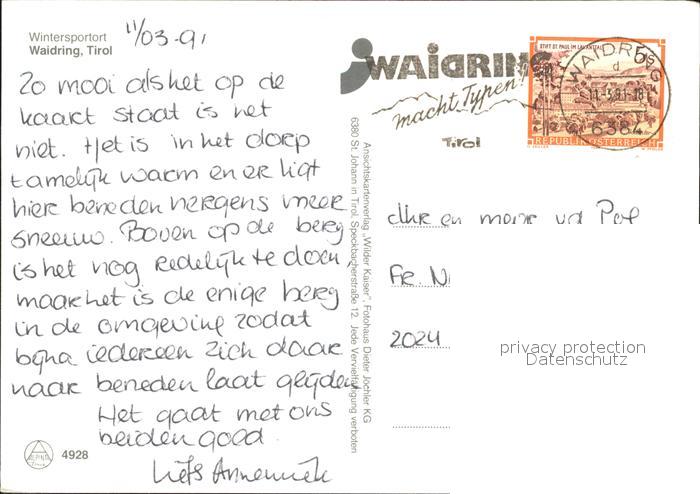 Wintersportort
Waidring, Tirol
11/03-91
Zo mooi als het op de
kaart staat is het
niet. Het is in het dorp
tamelijk warm en er ligt
hier beneden nergens meer
sneeuw. Boven op de berg
is het nog redelijk te doen
maar het is de enige berg
in de omgeving zodat
bijna iedereen zich daar
naar beneden laat glijden
Het gaat met ons
beiden goed.
Liefs Annemiek
4928
Ansichtskartenverlag „Wilder Kaiser", Fotohaus Dieter Jöchler KG
6380 St. Johann in Tirol, Speckbacherstraße 12. Jede Vervielfältigung verboten
WAIDRING
macht Typen!
Tirol
STIFT ST. PAUL IM LAVANTTAL
5 S
REPUBLIK ÖSTERREICH
WAIDRING
d
11.-3.91-18
6384
dhr en mevr vd
Fr. N
2024
privacy protection
Datenschutz